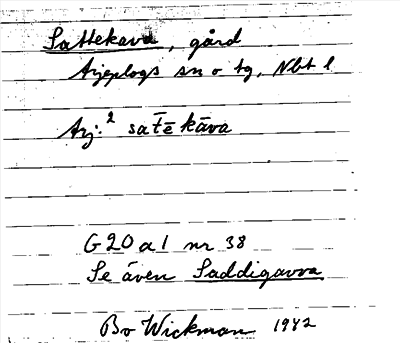 Sattekava, gård
Arjeplogs sn o tg, Nbt l
Arj.² sat̄ē kāva
G20 a1 nr 38
Se även Saddigavva
Bo Wickman 1942